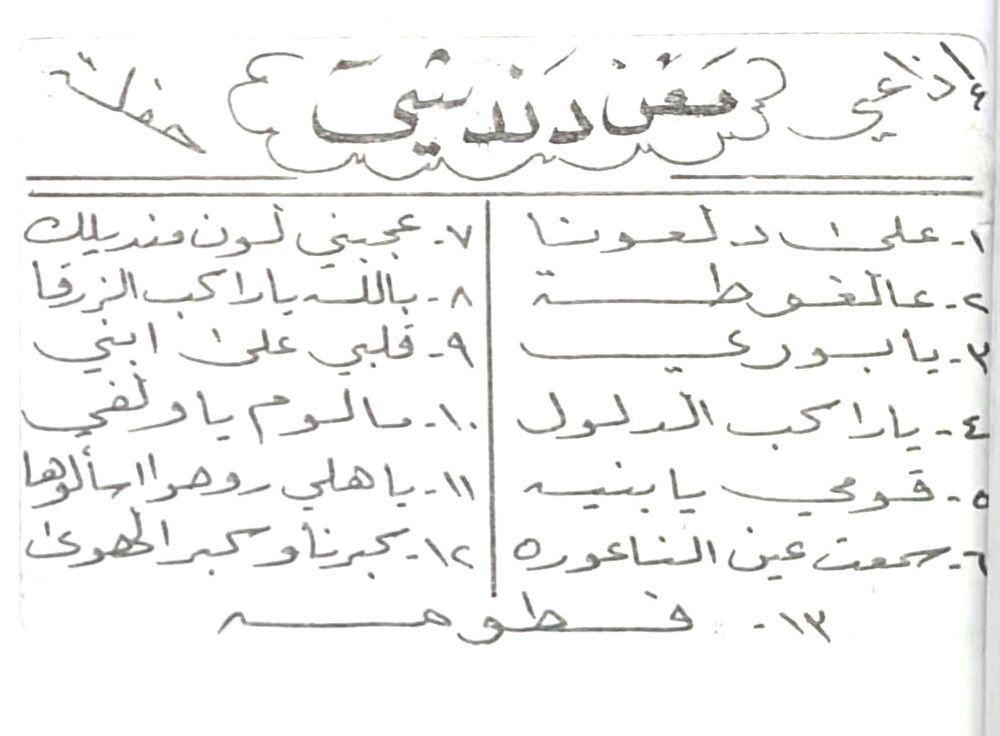 إذاعي ٤
معن دندشي
حفلة
١- على دلعونا
٢- عالغوطة
٣- يابوردي
٤- ياراكب الدلول
٥- قومي يابنيه
٦- سمعت عين الناعوره
٧- عجبني لون منديلك
٨- بالله ياراكب الزرقا
٩- قلبي على ابني
١٠- مالوم ياولفي
١١- ياهلي روحوا اسألوها
١٢- كبرنا وكبر الهوى
١٣- فطومه